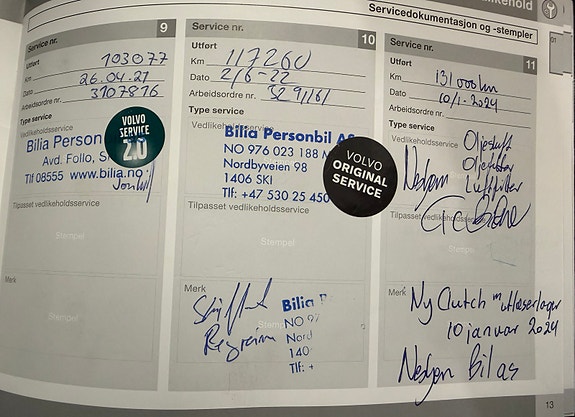 likehold
Servicedokumentasjon og -stempler
Service nr. 9
Utført
Km 103077
Dato 26.04.21
Arbeidsordre nr. 3107816
Type service
Vedlikeholdsservice
Bilia Person
Avd. Follo, S
Tlf 08555 www.bilia.no
VOLVO
SERVICE
2.0
Tilpasset vedlikeholdsservice
Stempel
Merk
Stempel
Service nr. 10
Utført
Km 117260
Dato 2/6-22
Arbeidsordre nr. 329161
Type service
Vedlikeholdsservice
Bilia Personbil AS
NO 976 023 188 M
Nordbyveien 98
1406 SKI
Tlf: +47 530 25 450
VOLVO
ORIGINAL
SERVICE
Tilpasset vedlikeholdsservice
Stempel
Merk
Bilia P
NO 97
Nord
140
Tlf: +
Service nr. 11
Utført
Km 131000km
Dato 10/1-2024
Arbeidsordre nr.
Type service
Vedlikeholdsservice
Oljeskift
Oljefilter
Luftfilter
Tilpasset vedlikeholdsservice
Stempel
Merk Ny Clutch m utløserlager
10 januar 2024
Bil as
13